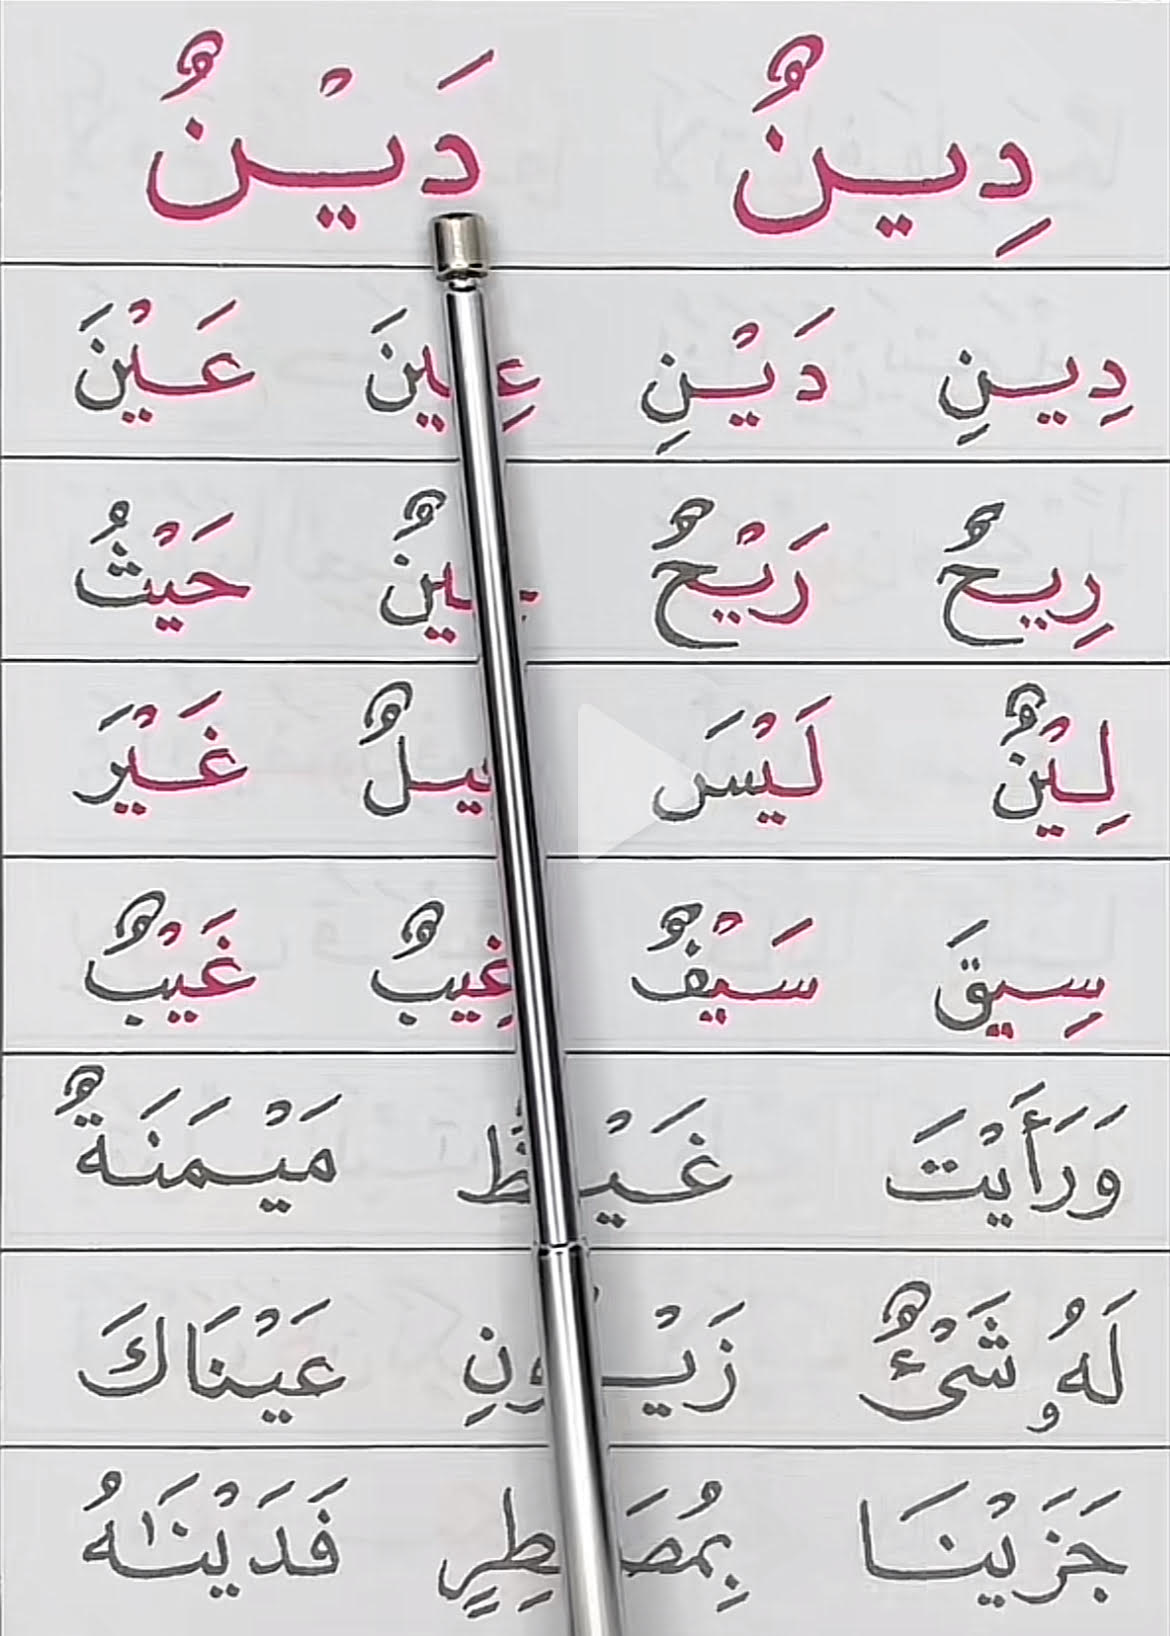 دِينٌ دَيْنٌ
دِينِ دَيْنِ عِينَ عَيْنَ
رِيحٌ رَيْحٌ حَيْثُ
لِيْنٌ لَيْسَ غَيْرَ
سِيقَ سَيْفٌ غِيبٌ غَيْبٌ
وَرَأَيْتَ مَيْمَنَةٌ
لَهُۥ شَىْءٌ عَيْنَاكَ
جَزَيْنَا فَدَيْنَٰهُ